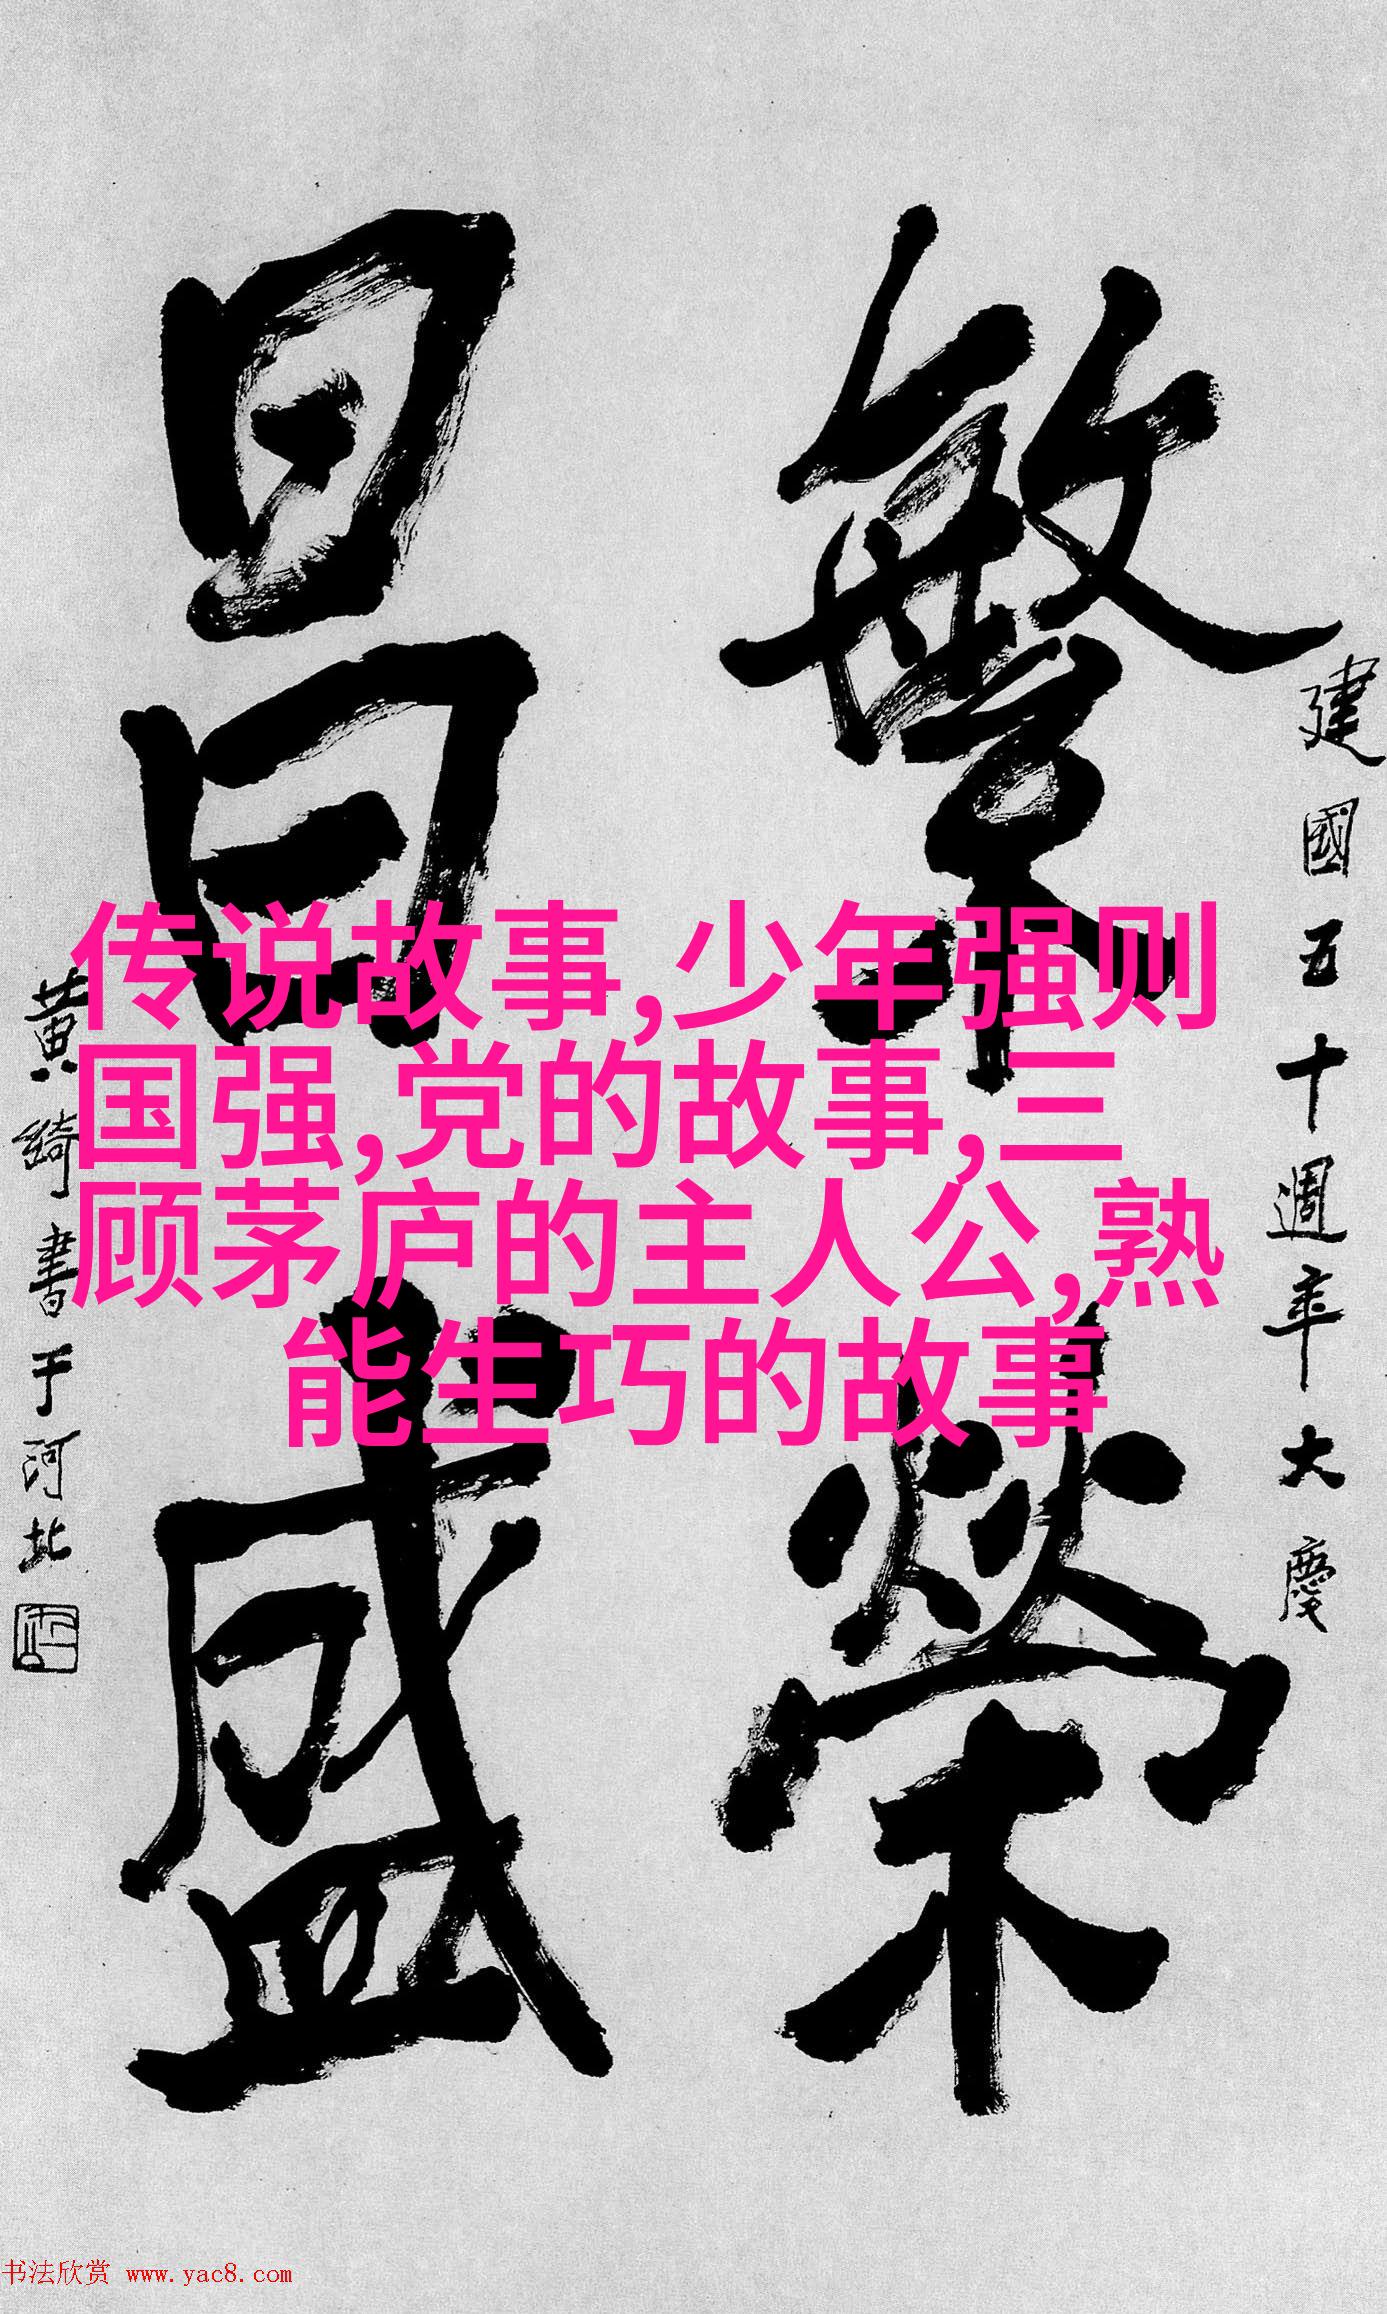 建國五十週年大慶
繁榮
昌盛
黄綺書于河北
传说故事,少年强则
国强,党的故事,三
顾茅庐的主人公,熟
能生巧的故事
书法欣赏 www.yac8.com